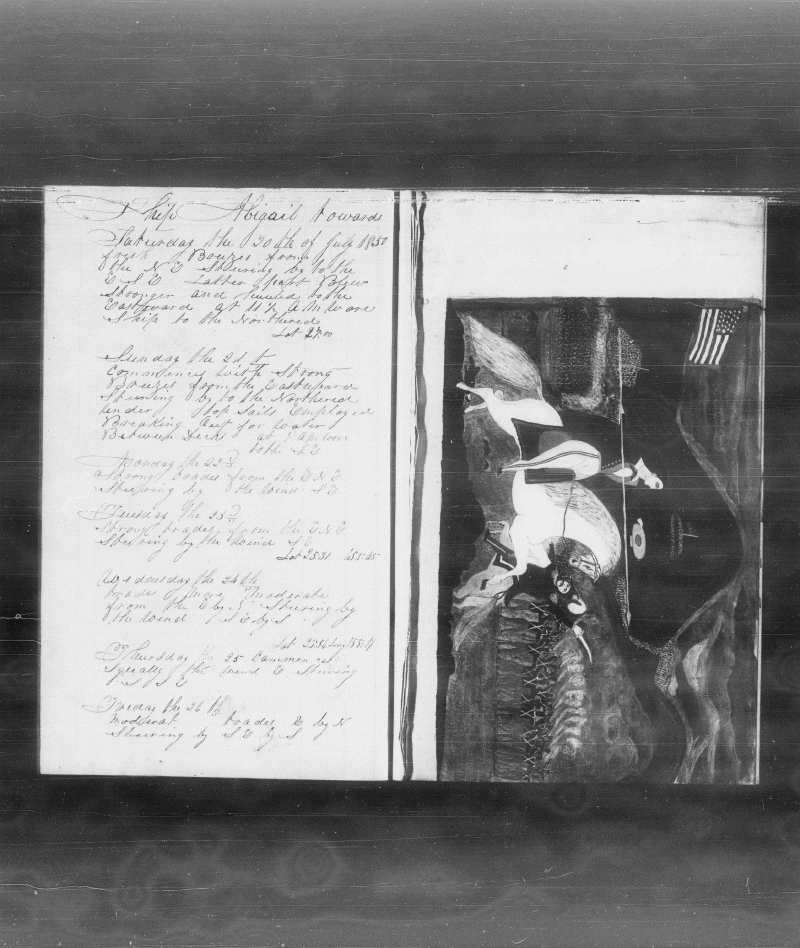 Ship Abigail towards
Saturday the 20th of July 1850
fresh Breezes from
the N E Steering by to the
E S E Latter part Blew
Stronger and hauled to the
Eastward at 11½ A M wore
Ship to the Northered
Lat 27.00
Sunday the 21 st
Commences with Strong
Breezes from the Eastward
Steering by to the Northered
under Top Sails Employed
Breaking out for water
Between Decks at 7 A M wore
to the S E
Monday the 22
Strong trades from the E N E
Steering by the Wind S E
Tuesday the 23
Strong trades from the E N E
Steering by the Wind S E
Lat 25 51 155-45
Wednesday the 24th
trades more Moderate
from the E by N Steering by
the Wind S E by S
Lat Long 155:19
Thursday the 25 Commences
the wind E Steering
S S E
Friday the 26 th
Moderat trades E by N
Steering by S E by S